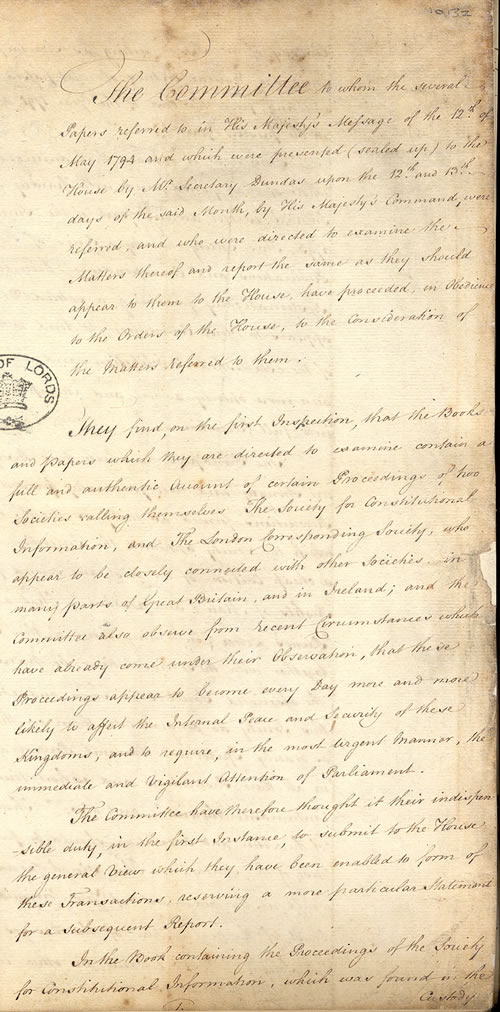 10132
The Committee to whom the several
Papers referred to in His Majesty's Message of the 12th of
May 1794 and which were presented (sealed up) to the
House by Mr. Secretary Dundas upon the 12th and 13th
days of the said Month, by His Majesty's Command, were
referred, and who were directed to examine the
Matters thereof and report the same as they should
appear to them to the House, have proceeded, in Obedience
to the Orders of the House, to the Consideration of
the Matters referred to them.
OF LORDS
They find, on the first Inspection, that the Books
and papers which they are directed to examine contain a
full and authentic Account of certain Proceedings of two
Societies calling themselves The Society for Constitutional
Information, and The London Corresponding Society, who
appear to be closely connected with other Societies in
many parts of Great Britain, and in Ireland; and the
Committee also observe from recent Circumstances which
have already come under their Observation, that these
Proceedings appear to become every Day more and more
likely to affect the Internal Peace and Security of these
Kingdoms, and to require, in the most urgent Manner, the
immediate and Vigilant Attention of Parliament.
The Committee have therefore thought it their indispen
-sible duty, in the first Instance, to submit to the House
the general View which they have been enabled to form of
these Transactions, reserving a more particular Statement
for a subsequent Report.
In the Book containing the Proceedings of the Society
for Constitutional Information, which was found in the
Custody